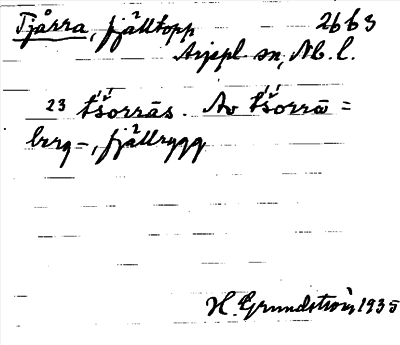 Tjårra, fjälltopp 26 b 3
Arjepl sn, Nb. l.
23 tšorrās. Av tšorrā =
berg-, fjällrygg
H. Grundström 1935